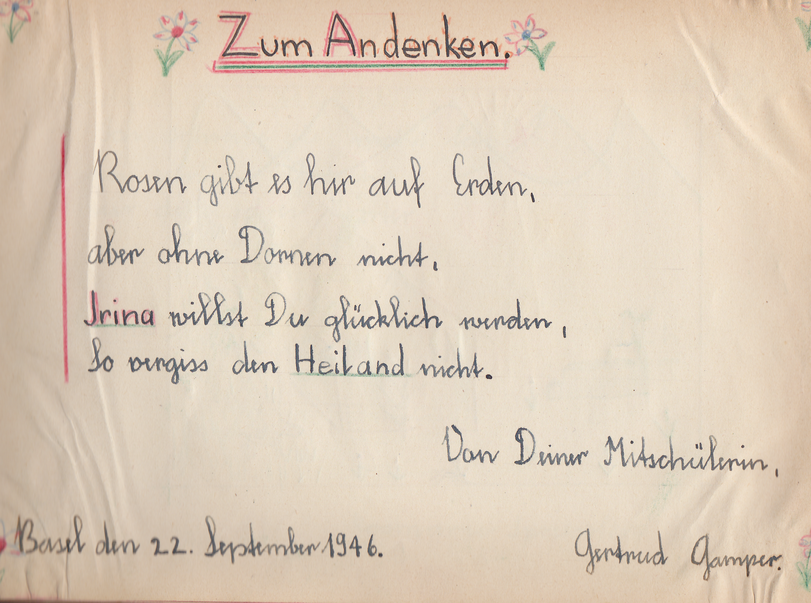 Zum Andenken.
Rosen gibt es hir auf Erden,
aber ohne Dornen nicht,
Irina willst Du glücklich werden,
So vergiss den Heiland nicht.
Von Deiner Mitschülerin,
Basel den 22. September 1946.
Gertrud Gamper.